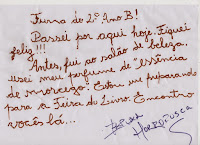 Turma do 2º Ano B!
Passei por aqui hoje. Fiquei
feliz!!!
Antes, fui ao salão de beleza,
usei meu perfume de "essência
de morcego". Estou me preparando
para a Feira do Livro. Encontro
vocês lá...